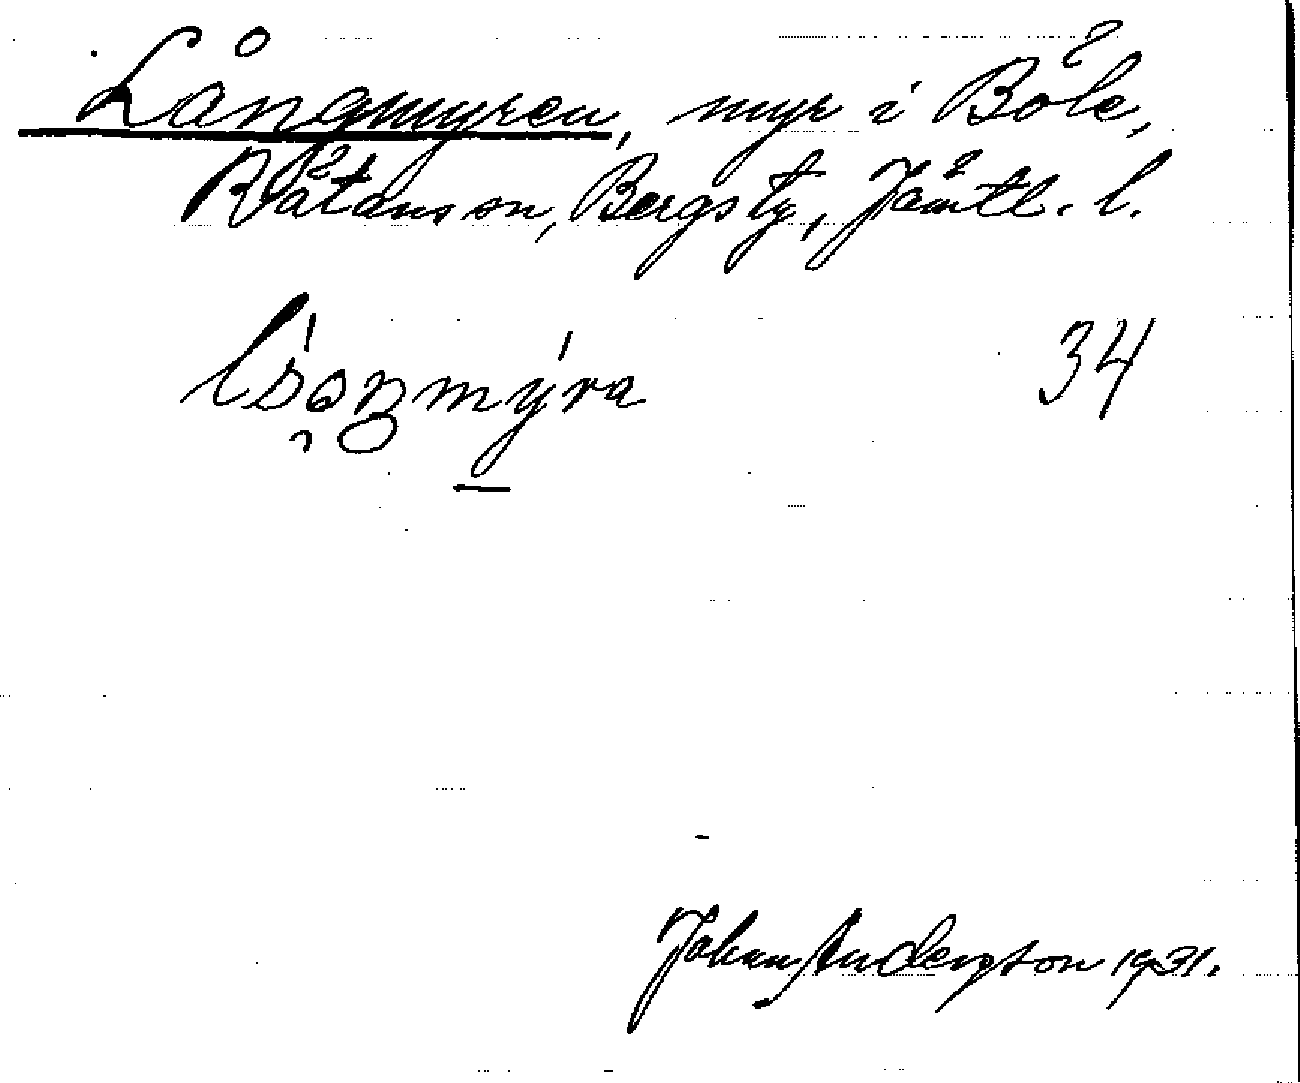 Långmyren, myr i Böle,
Rätans sn, Bergs tg, Jämtl. l.
34
Johan Anderson 1931.